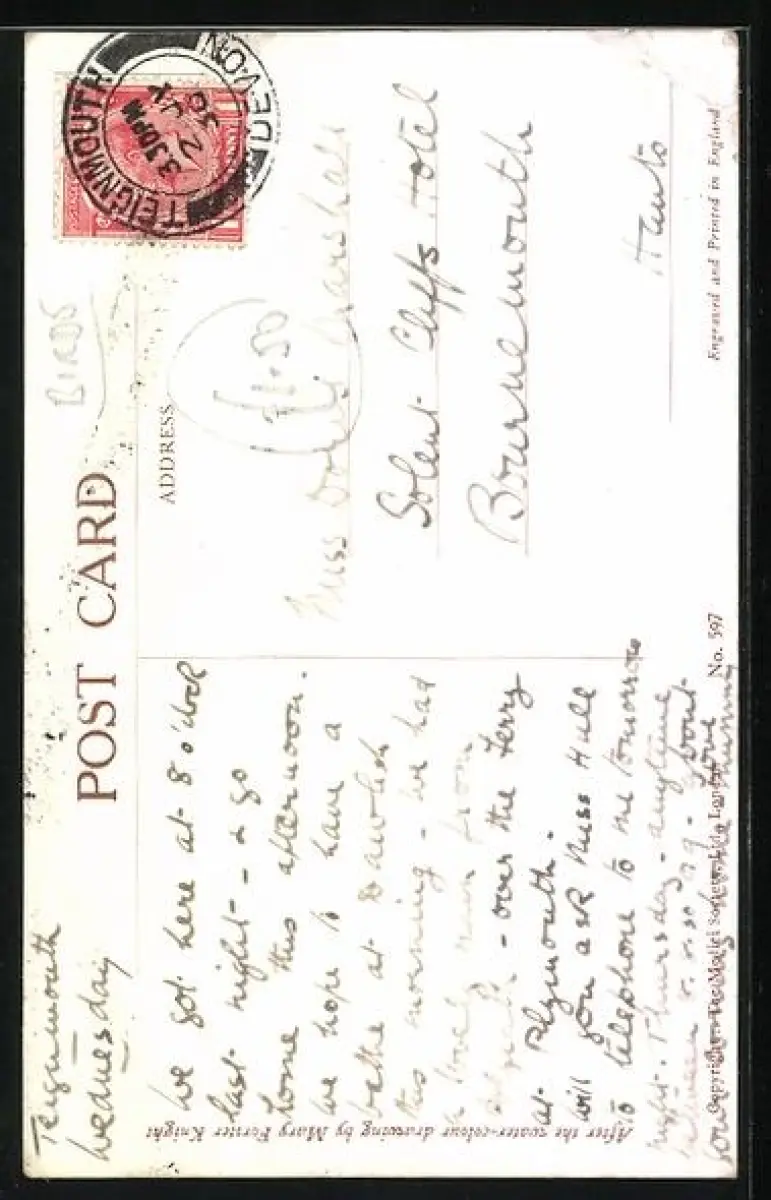 TEIGNMOUTH
DEVON
3.30 PM
2 JY
30
BIRDS
POST CARD
ADDRESS
£1.50
Miss Marshall
Solent Cliffs Hotel
Bournemouth
Hants
Teignmouth
Wednesday
We got here at 8 o'clock
last night - & go
home this afternoon.
We hope to have a
bathe at Dawlish
this morning - we had
a lovely run from
- over the ferry
at Plymouth.
Will you ask Miss Hull
to telephone to me tomorrow
night. Thursday - anytime
between
love
After the water-colour drawing by Mary Forster Knight
Copyright The Medici Society Ltd. London
No. 597
Engraved and Printed in England